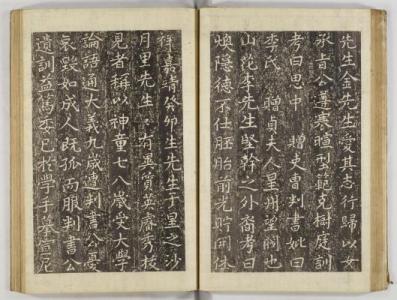 先生金先生愛其志行歸以女
承旨公遵襲暄型範克樹庭訓
考曰思中 贈吏曹判書妣曰
李氏 贈貞夫人星州望閥也
山花李先生堅幹之外裔考曰
煥隱德不仕胚胎前光貯開休
祥嘉靖癸卯生先生于星之沙
月里先生 有異質英睿秀拔
見者稱以神童七八歲受大學
論語通大義九歲遭判書公憂
哀毀如成人既孤而服判書公
遺訓益篤委己於學手摹宣尼